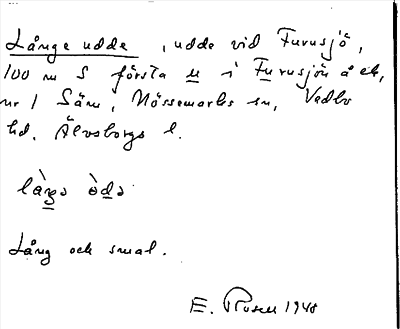 Långe udde, udde vid Furusjö,
100 m S första u i Furusjön å ek,
nr 1 Säm, Nössemarks sn, Vedbo
hd. Älvsborgs l.
là̠ŋə ò̠də
Lång och smal.
E. Rosen 1940